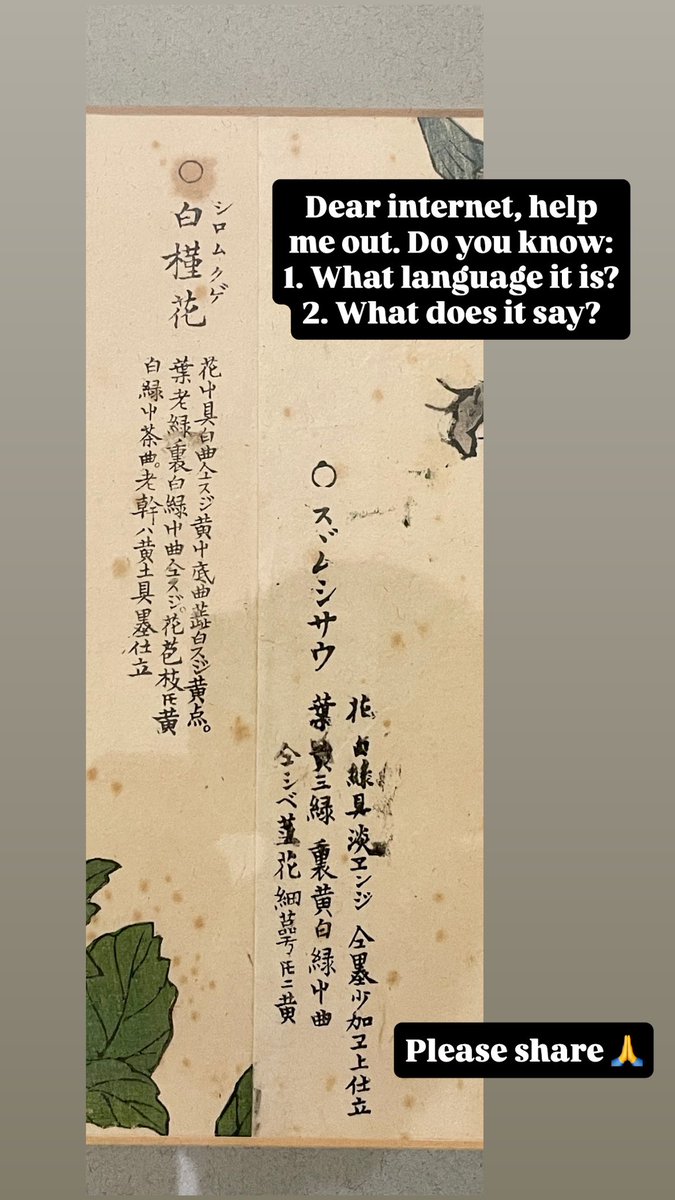 Dear internet, help
me out. Do you know:
1. What language it is?
2. What does it say?
○スヾムシサウ
花 白緑具 淡ヱンジ 仝墨少加ヱ上仕立
葉 黄三緑 裏黄白緑中曲
仝シベ莖花細萼𪜈ニ黄
○白槿花
シロムクゲ
花中具白曲仝スジ黄中底曲蕋白スジ黄点。
葉老緑裏白緑中曲仝スジ。花苞枝𪜈黄
白緑中茶曲。老幹ハ黄土具墨仕立
Please share 🙏